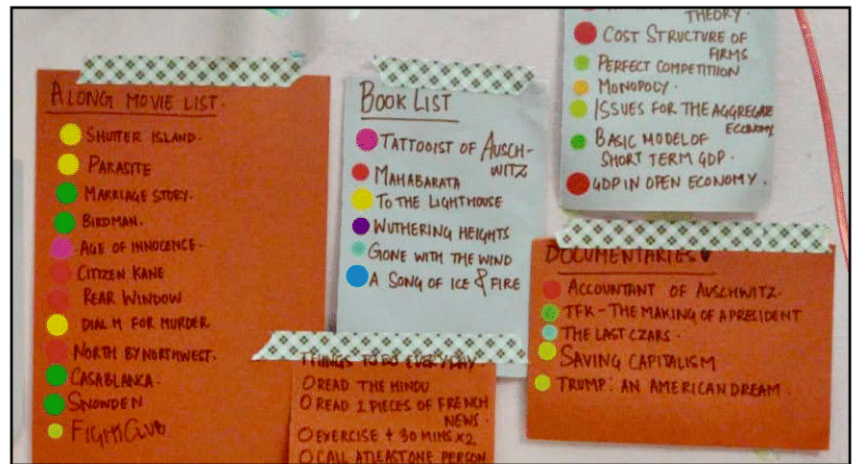 A LONG MOVIE LIST.
SHUTTER ISLAND.
PARASITE
MARRIAGE STORY.
BIRDMAN.
AGE OF INNOCENCE.
CITIZEN KANE
REAR WINDOW
DIAL M FOR MURDER
NORTH BY NORTHWEST.
CASABLANCA.
SNOWDEN
FIGHT CLUB
BOOK LIST
TATTOOIST OF AUSCH-
WITZ
MAHABARATA
TO THE LIGHTHOUSE
WUTHERING HEIGHTS
GONE WITH THE WIND
A SONG OF ICE & FIRE
THINGS TO DO EVERYDAY
READ THE HINDU
READ 2 PIECES OF FRENCH
NEWS.
EXERCISE + 30 MINS X2
CALL ATLEAST ONE PERSON
THEORY.
COST STRUCTURE OF
FIRMS
PERFECT COMPETITION
MONOPOLY.
ISSUES FOR THE AGGREGATE
ECONOMY
BASIC MODEL OF
SHORT TERM GDP.
GDP IN OPEN ECONOMY.
DOCUMENTARIES
ACCOUNTANT OF AUSCHWITZ.
TFK - THE MAKING OF A PRESIDENT
THE LAST CZARS.
SAVING CAPITALISM
TRUMP: AN AMERICAN DREAM.